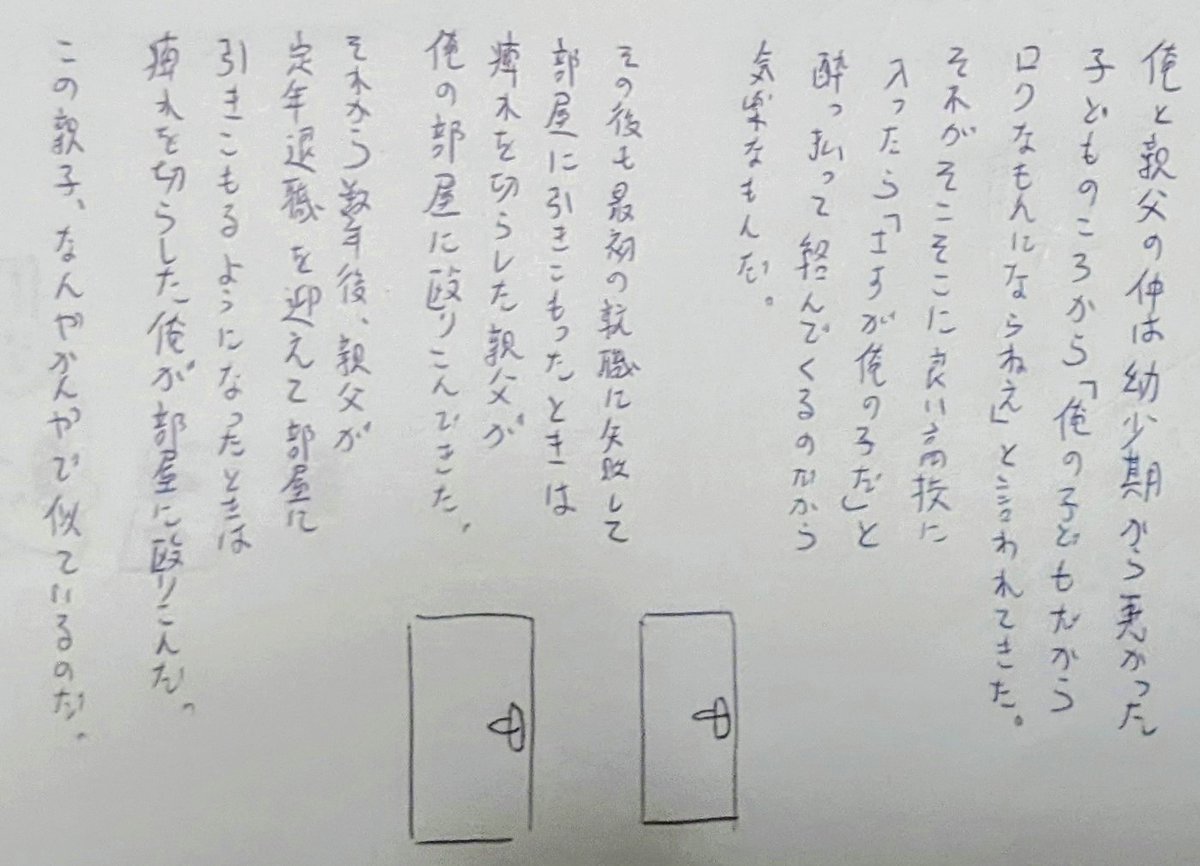 俺と親父の仲は幼少期から悪かった
子どものころから「俺の子どもだから
ロクなもんにならねえ」と言われてきた。
それがそこそこに良い高校に
入ったら「さすが俺の子だ」と
酔っ払って絡んでくるのだから
気楽なもんだ。
その後も最初の就職に失敗して
部屋に引きこもったときは
痺れを切らした親父が
俺の部屋に殴りこんできた。
それから数年後、親父が
定年退職を迎えて部屋に
引きこもるようになったときは
痺れを切らした俺が部屋に殴りこんだ。
この親子、なんやかんやで似ているのだ。